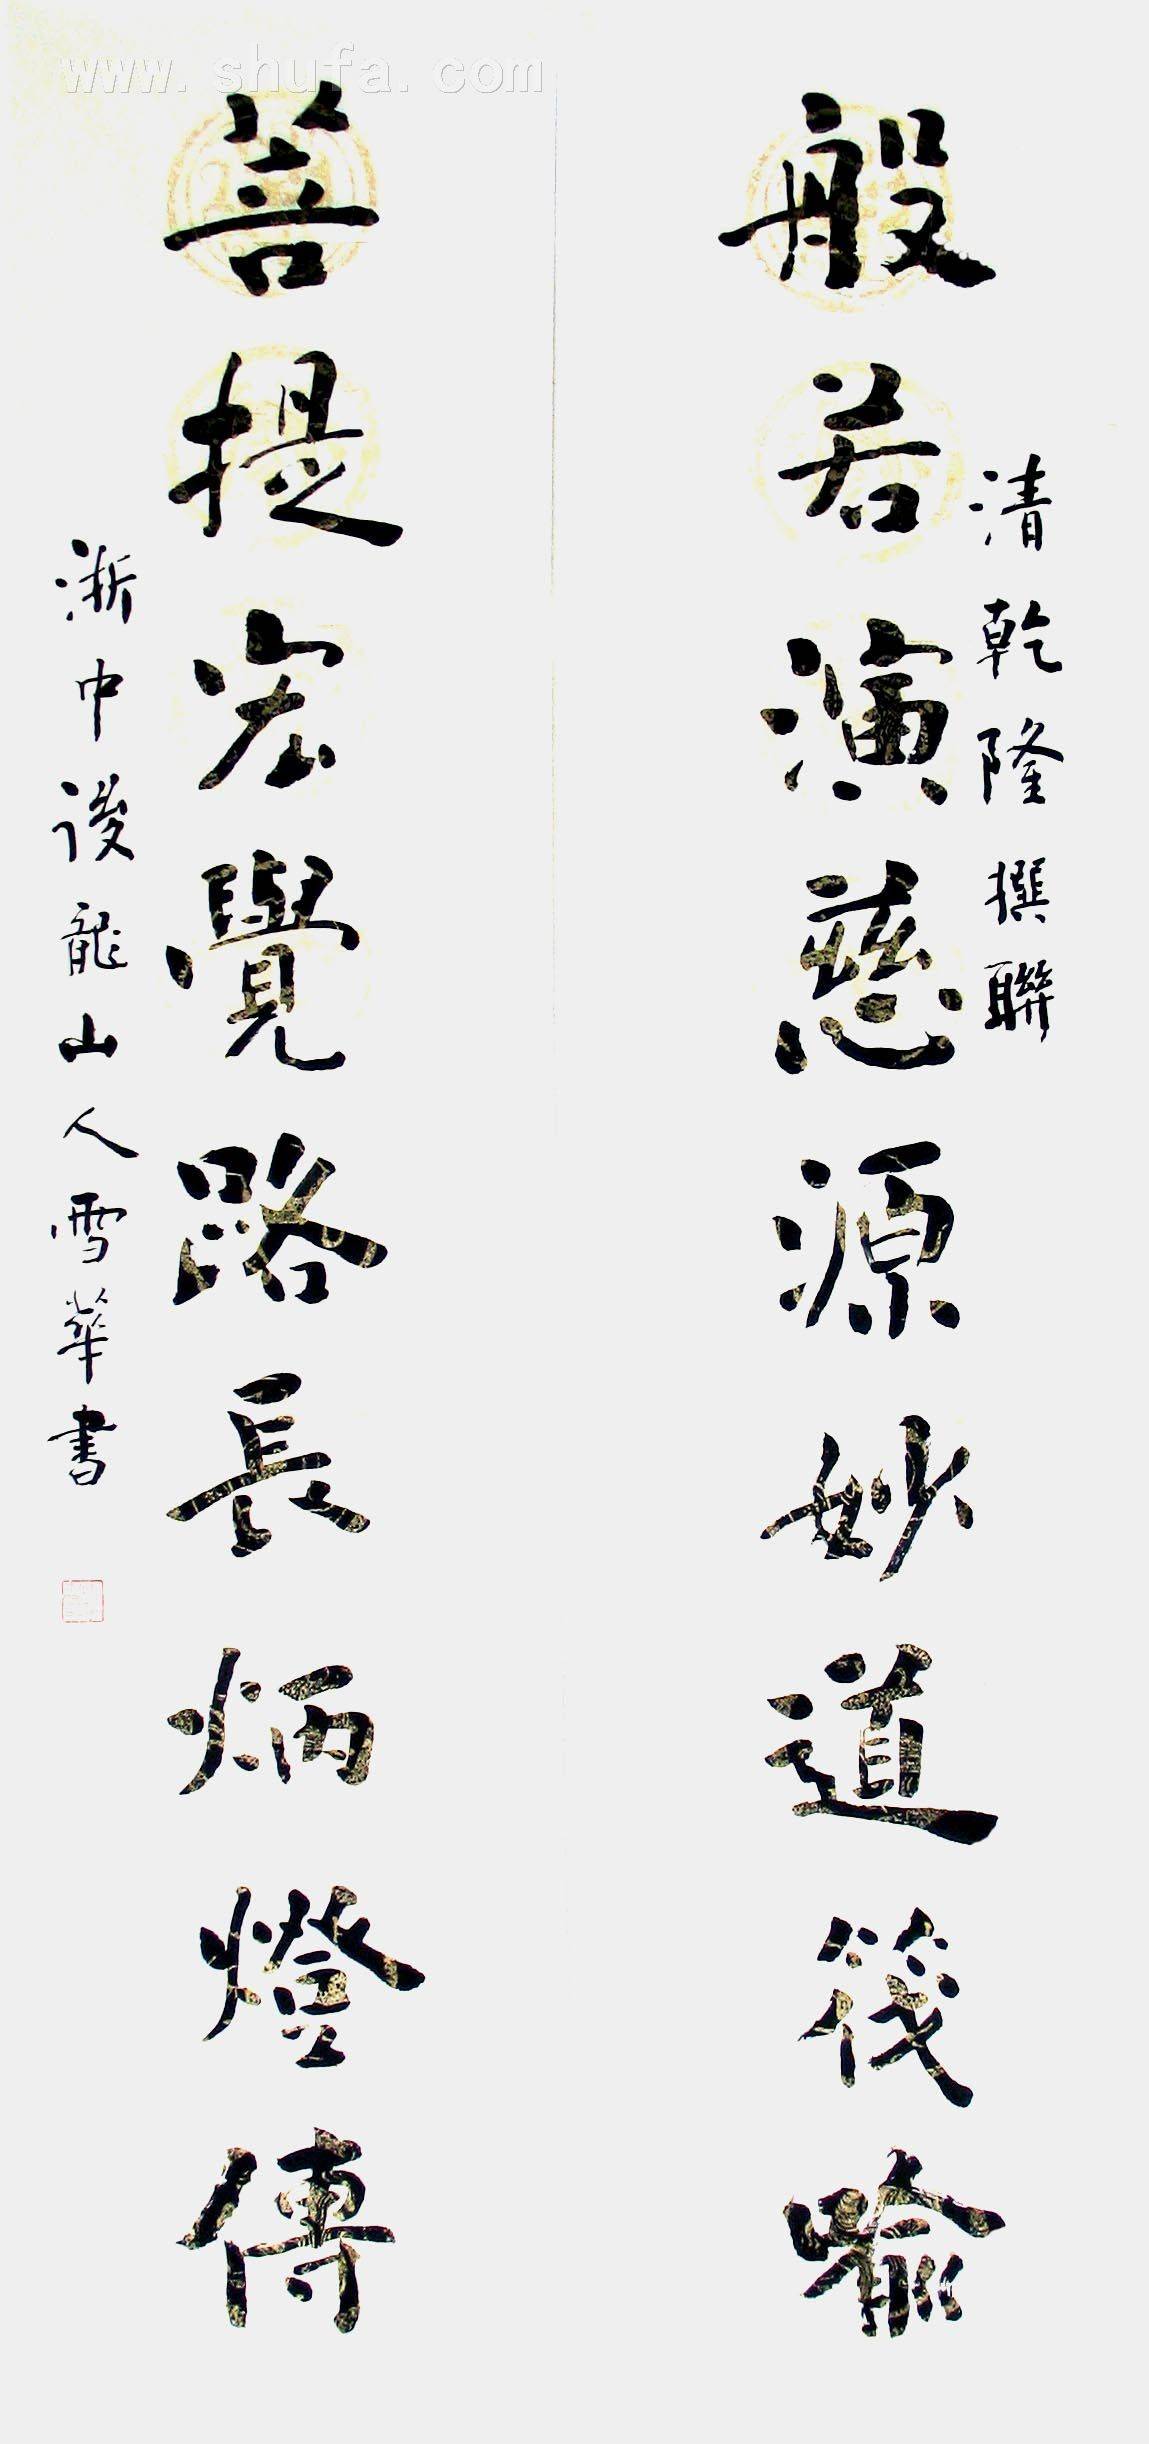 www.shufa.com
清乾隆撰聯
般若演慈源妙道筏喻
菩提宏覺路長炳燈傳
浙中後龍山人雪華书